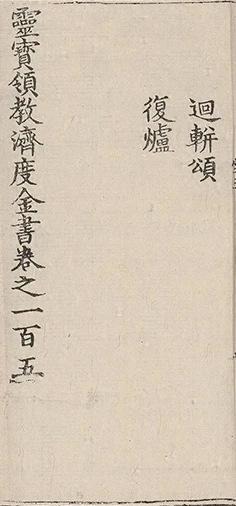 迴軿頌
復爐
靈寳領教濟度金書卷之一百五